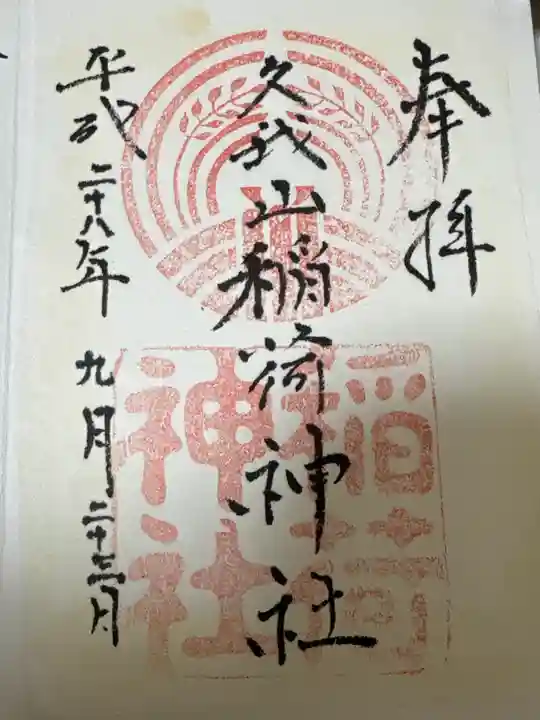 奉拝
久我山稲荷神社
平成二十八年九月二十三日
稲荷
神社